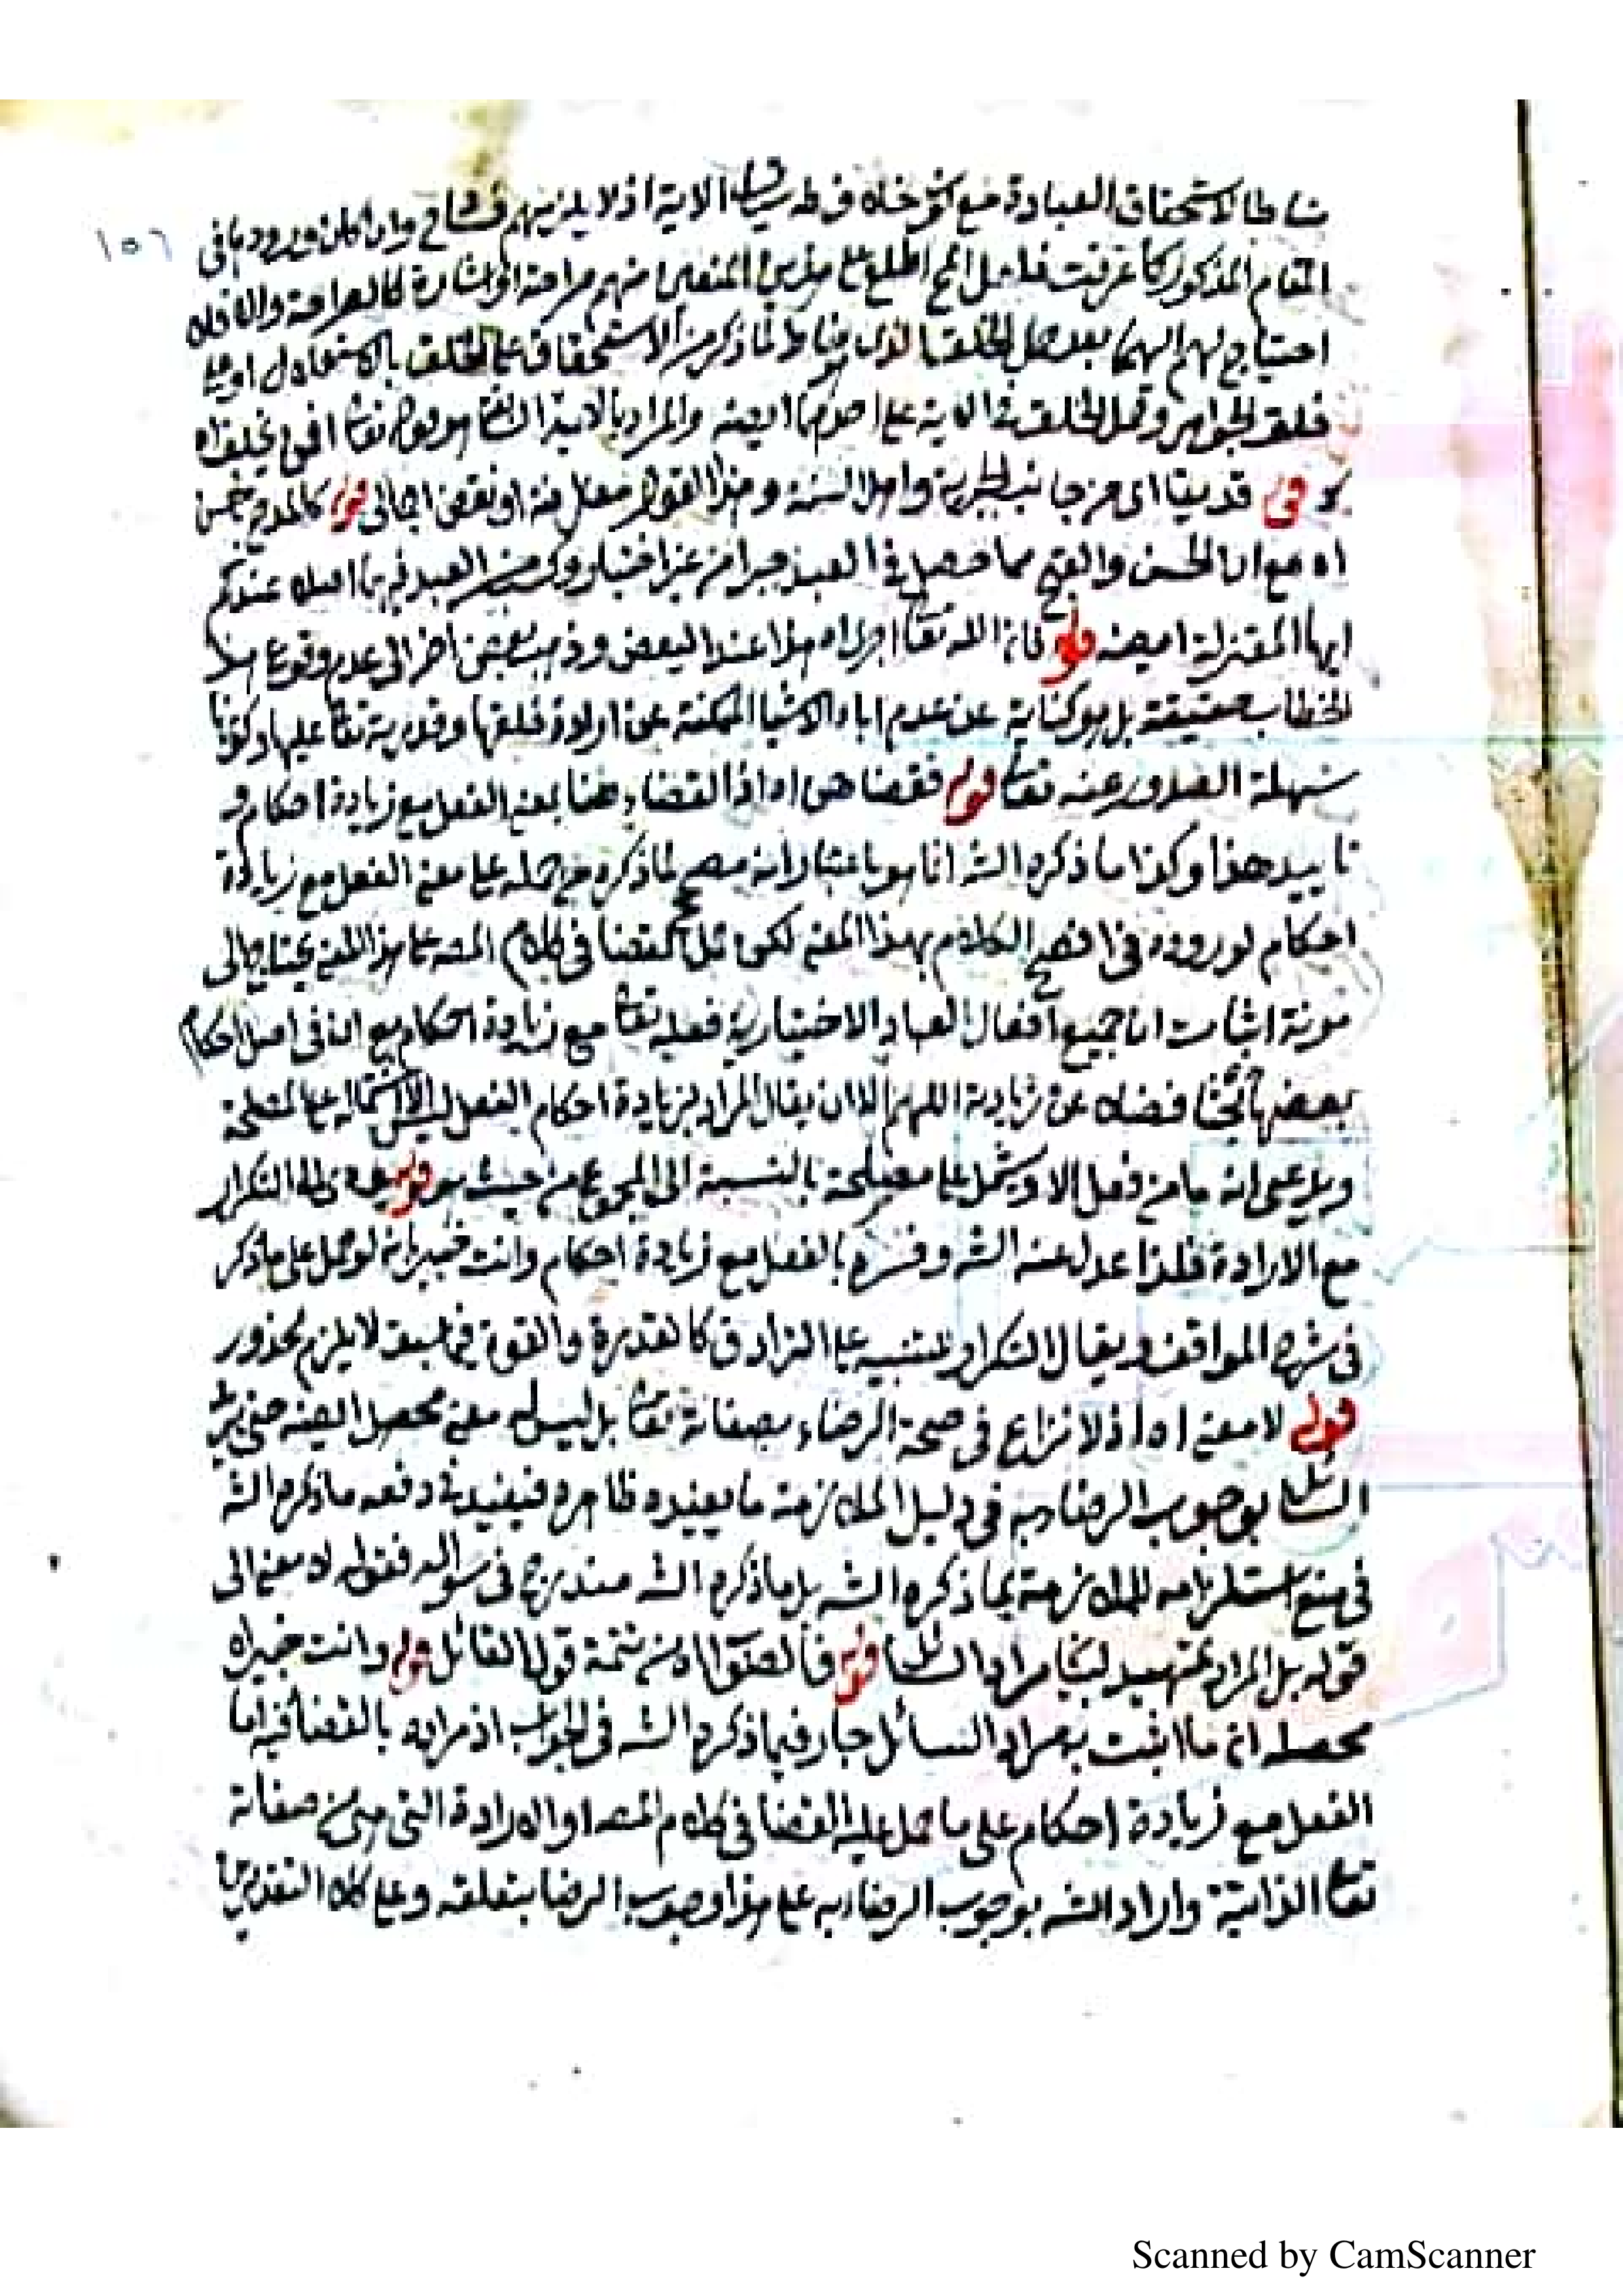 مناطا لاستحقاق العبادة مع الآية اذ لا يلزمهم وان كان ورودها في
١٥٦
المقام المذكور كما عرفت
احتياج لهم اليهما بعد حمل الخلق الذي مناطا لما ذكر من الاستحقاق على الخلق بالاستقلال او على
خلق الجواهر وحمل الخلق في الآية على احدهما ايضا والمراد بالآية الثانية هو قوله تعالى افمن يخلق اه
قوله قد يقال اى من جانب الجبرية واهل السنة وهذا القول معارضة او نقض اجمالى قوله كالمدح بحسن
اه مع ان الحسن والقبح مما حصل في العبد جبرا من غير اختيار وكسب من العبد فيهما اصلا عندكم
ايها المعتزلة ايضا قوله فان الله تعالى اجرى اه هذا عند البعض وذهب بعض آخر الى عدم وقوع هذا
الخطاب حقيقة بل هو كناية عن عدم اباء الاشياء الممكنة عن ارادة خلقها وقدرته تعالى عليها وكونها
سهلة الصدور عنه تعالى قوله فقضاهن اه اذ القضاء هنا بمعنى الفعل مع زيادة احكام و
تأييد هذا وكذا ما ذكره الشه انما هو باعتبار انه مصحح لما ذكره من حمله على معنى الفعل مع زيادة
احكام لوروده في افصح الكلام بهذا المعنى لكن حمل القضاء في كلام المصه على هذا المعنى يحتاج الى
مونة اثبات ان جميع افعال العباد الاختيارية فعله تعالى مع زيادة احكام مع ان في اصل احكام
بعضها خفاء فضلا عن زيادته اللهم الا ان يقال المراد بزيادة احكام الفعل اشتماله على المصلحة
ويدعى انه ما من فعل الا ويشتمل على مصلحة بالنسبة الى المجموع من حيث هو قوله التكرار
مع الارادة فلذا عدل عنه الشه وفسره بالفعل مع زيادة احكام وانت خبير بانه لو حمل على ما ذكر
في شرح المواقف ويقال التكرار للتنبيه على الترادف كالقدرة والقوة فيما سبق لا يلزم محذور
قوله لا معنى اه اذ لا نزاع في صحة الرضاء بصفاته تعالى بل ليس له معنى محصل ايضا حتى يريد
السائل بوجوب الرضاء به في دليل الملازمة ما يفيده ظاهره فيفيد في دفعه ما ذكره الشه
في منع استلزامه للملازمة بما ذكره الشه بل ما ذكره الشه مندرج في سواله فقوله لا معنى الى
قوله بل المراد تمهيد لبيان مراد السائل قوله فالصواب اه من تتمة قول القائل قوله وانت خبير اه
محصله انه ما اثبت به مراد السائل جار فيما ذكره الشه في الجواب اذ مراده بالقضاء فيه اما
الفعل مع زيادة احكام على ما حمل عليه القضاء في كلام المصه او الارادة التى هى من صفاته
تعالى الذاتية واراد الشه بوجوب الرضاء به على هذا وجوب الرضا بتعلقه وعلى كلا التقديرين
Scanned by CamScanner